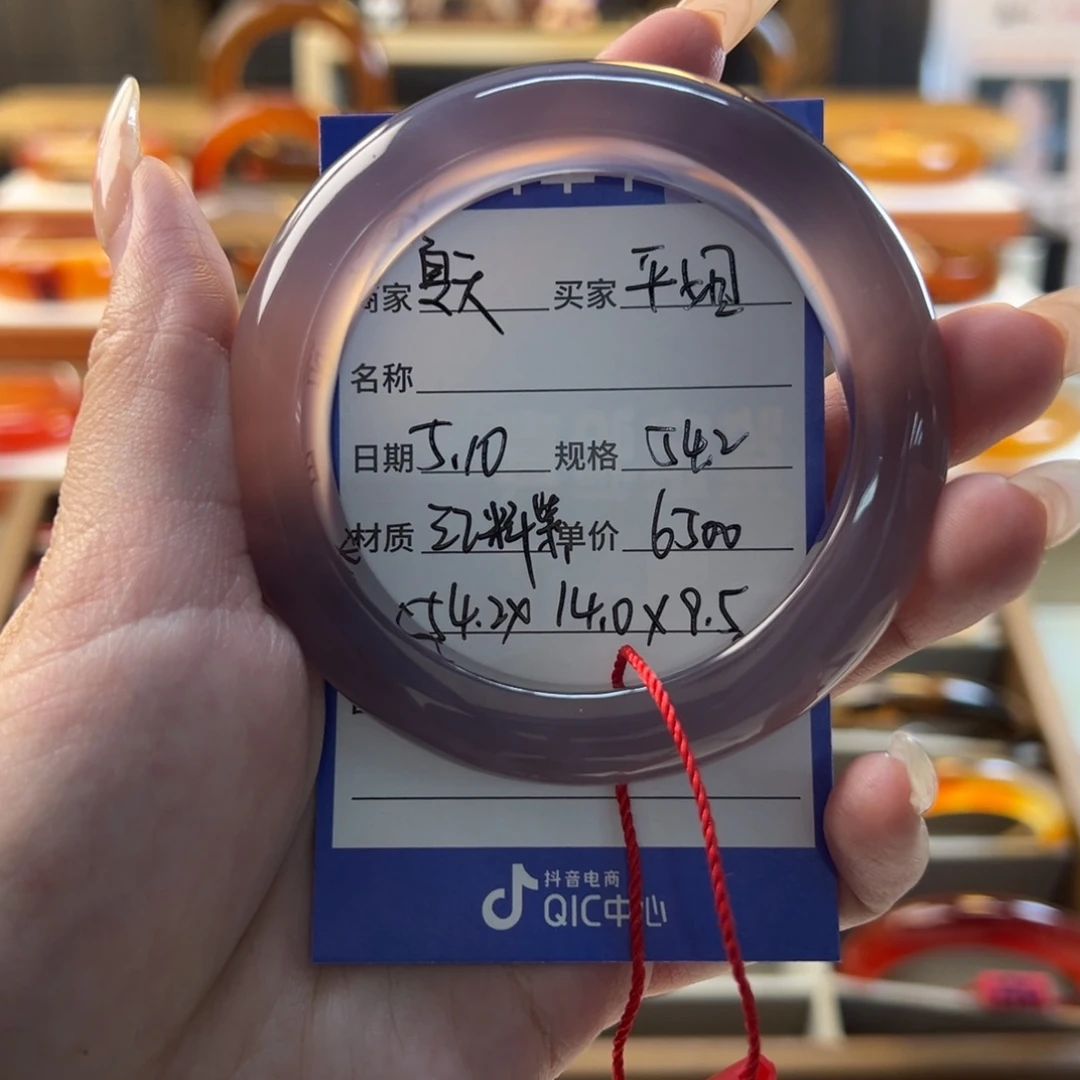 商家 买家 平姐
名称
日期 5.10 规格 54.2
材质 红料紫 单价 6500
54.2x 14.0x9.5
抖音电商
QIC中心